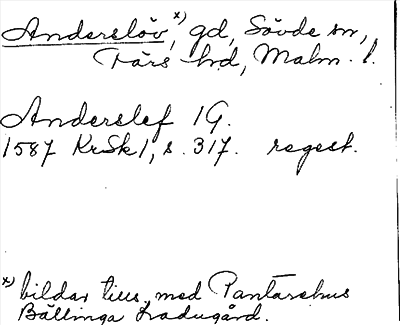 Anderslöv,ˣ⁾ gd, Sövde sn,
Färs hd, Malm. l.
Anderslef 1G.
1587 KrSk1, s. 317. regest.
ˣ⁾ bildar tills. med Pantarehus
Bällinga Ladugård.